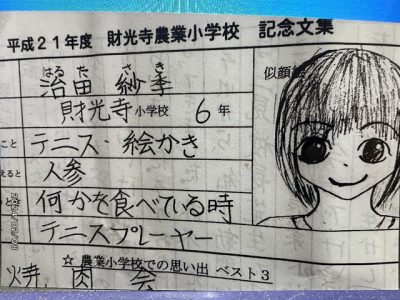 平成21年度 財光寺農業小学校 記念文集
はるた さき
治田 紗季
似顔
財光寺小学校 6年
こと テニス・絵かき
ると 人参
何かを食べている時
テニスプレーヤー
☆ 農業小学校での思い出 ベスト3
焼肉会